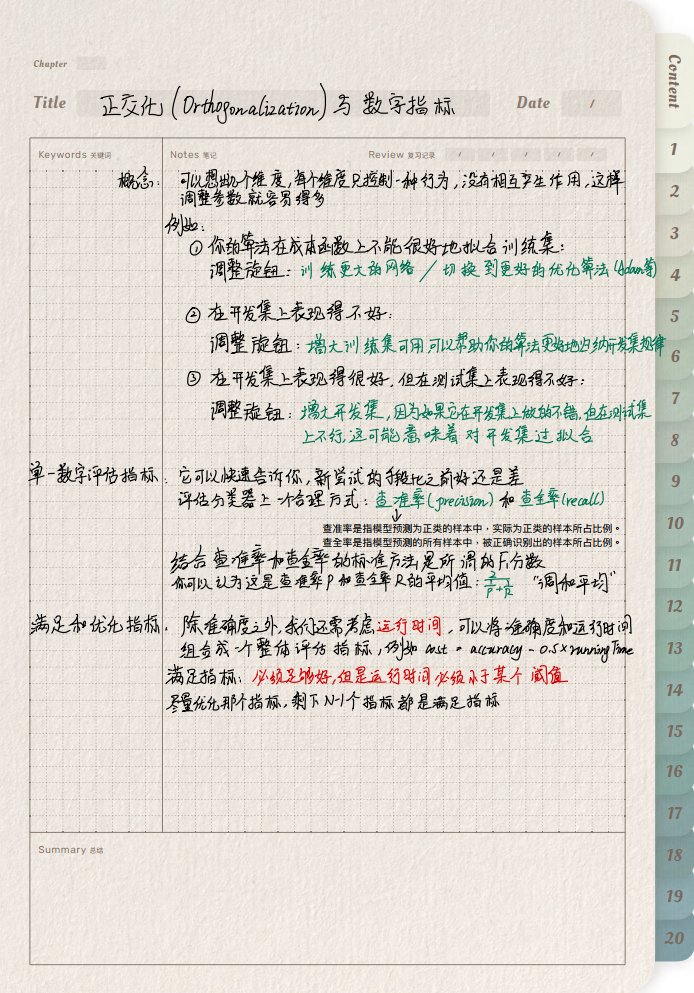 Chapter
Title 正交化(Orthogonalization)与数字指标 Date /
Content
Keywords 关键词 Notes 笔记 Review 复习记录 / / / / /
概念: 可以想出n个维度,每个维度只控制一种行为,没有相互产生作用,这样
调整参数就容易得多
例如:
① 你的算法在成本函数上不能很好地拟合训练集:
调整旋钮: 训练更大的网络 / 切换到更好的优化算法(Adam等)
② 在开发集上表现得不好:
调整旋钮: 增大训练集可用,可以帮助你的算法更好地归纳开发集规律
③ 在开发集上表现得很好,但在测试集上表现得不好:
调整旋钮: 增大开发集,因为如果它在开发集上做的不错,但在测试集
上不行,这可能意味着对开发集过拟合
单一数字评估指标: 它可以快速告诉你,新尝试的手段比之前好还是差
评估分类器上一个合理方式: 查准率(precision) 和 查全率(recall)
查准率是指模型预测为正类的样本中,实际为正类的样本所占比例。
查全率是指模型预测的所有样本中,被正确识别出的样本所占比例。
结合查准率和查全率的标准方法是所谓的F₁分数
你可以认为这是查准率P和查全率R的平均值: 2/(1/P+1/R) "调和平均"
满足和优化指标: 除准确度之外,我们还需考虑运行时间,可以将准确度和运行时间
组合成一个整体评估指标,例如 cost = accuracy - 0.5×runningTime
满足指标: 必须足够好,但是运行时间必须小于某个阈值
尽量优化那个指标,剩下N-1个指标都是满足指标
Summary 总结
1
2
3
4
5
6
7
8
9
10
11
12
13
14
15
16
17
18
19
20